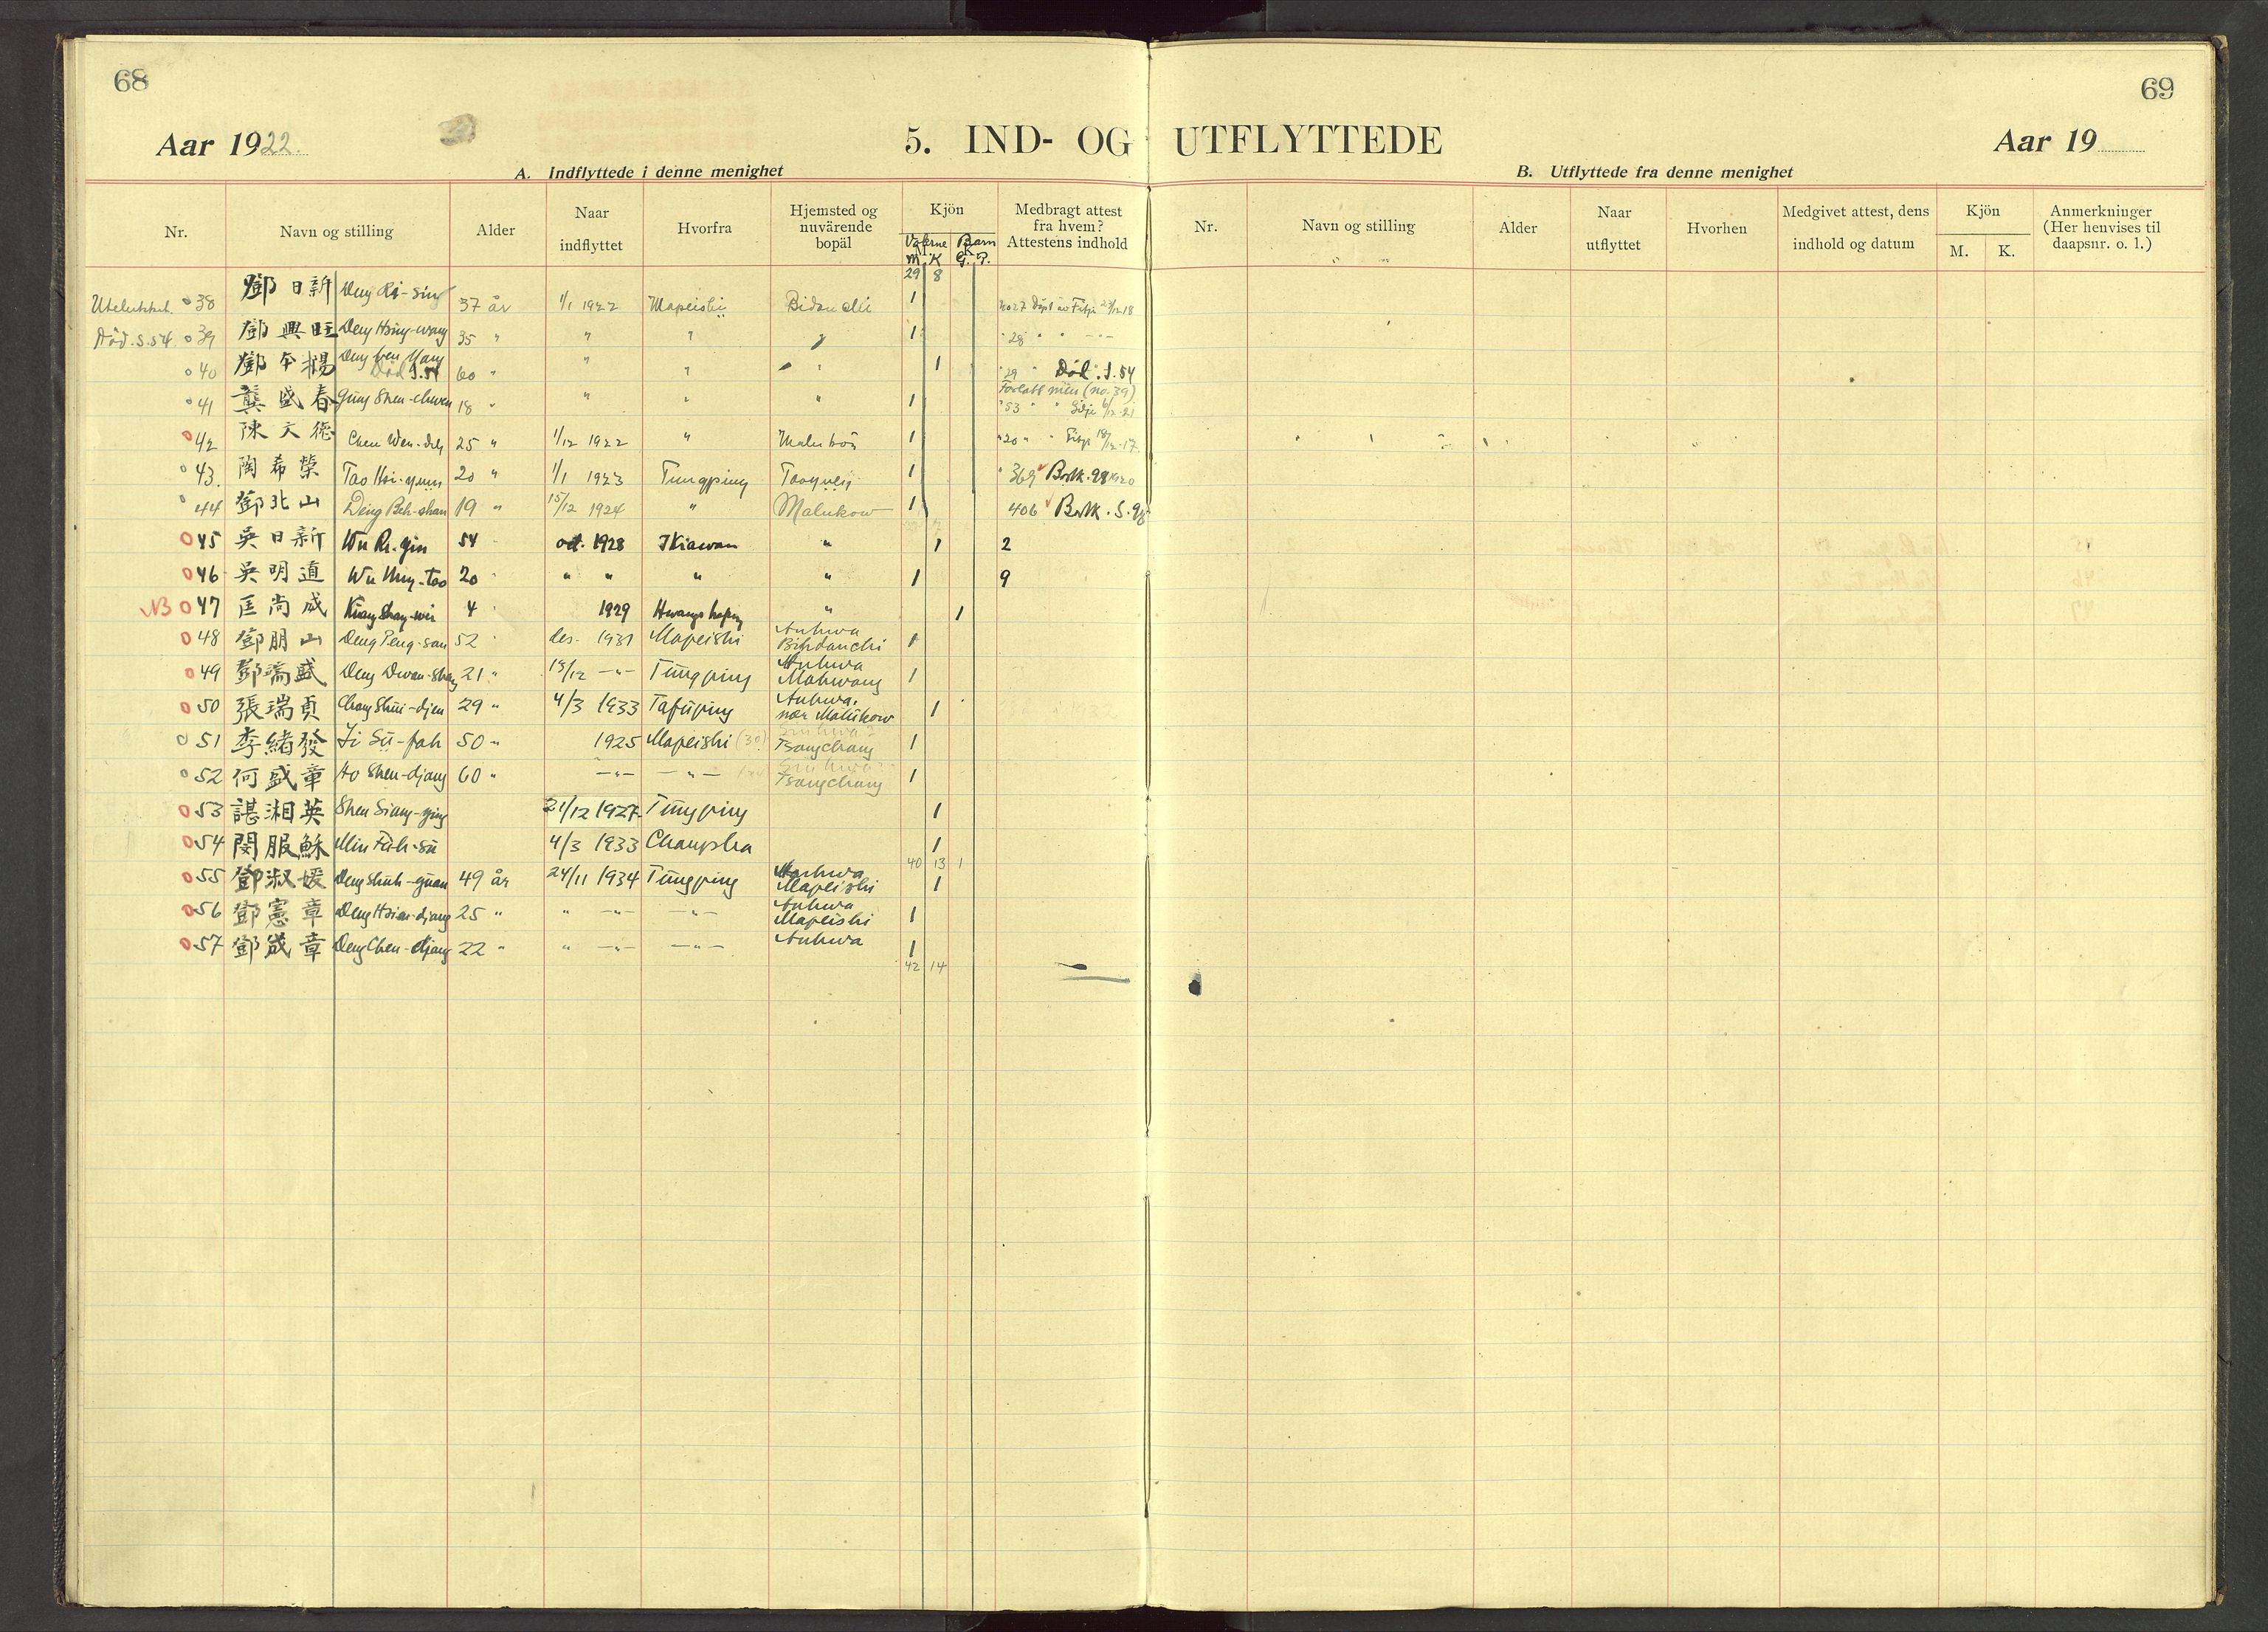 68
69
Aar 1922.
5. IND- OG UTFLYTTEDE
Aar 19
A. Indflyttede i denne menighet
B. Utflyttede fra denne menighet
Nr. Navn og stilling Alder Naar indflyttet Hvorfra Hjemsted og nuværende bopäl Kjön Medbragt attest fra hvem? Attestens indhold
Voksne Barn
M. K G. P.
Nr. Navn og stilling Alder Naar utflyttet Hvorhen Medgivet attest, dens indhold og datum Kjön M. K. Anmerkninger (Her henvises til daapsnr. o. l.)
29 8
38 鄧日新 Deng Ri-sing 37 år 1/1 1922 Mapeishi 1
Död. S. 54 39 鄧興旺 Deng Hsing-wang 35 " " " 1 " 28 " "
40 鄧 Död S. 54 60 " " " " 1 " 29 " Död. S. 54
41 龔盛春 Gung Shen-chuen 18 " " " " 1 " 53 " "
42 陳文德 Chen Wen-deh 25 " 1/12 1922 " 1 " 20 " "
43. 陶希榮 Tao Hsi-yuin 20 " 1/1 1923 Tungping Taoyuen 1 " 369
44 鄧北山 Deng Beh-shan 19 " 15/12 1924 " Malukow 1 406
45 吳日新 Wu Ri-gin 54 okt. 1928 " 1 2
46 吳明道 Wu Ming-tao 20 " " " " 1 9
NB 47 匡尚威 Kiang Shang-wei 4 1929 " 1
48 鄧朋山 Deng Peng-san 52 des. 1931 Mapeishi Anhwa 1
49 鄧瑞盛 Deng Dwan-Sheng 21 " 15/12 —"— Tungping Anhwa Mahwang 1
50 張瑞貞 Chang Shui-djen 29 " 4/3 1933 Tafuping Anhwa. nær Malukow 1
51 李緒發 Li Sü-fah 50 " 1925 Mapeishi (30) Tsangchang 1
52 何盛章 Ho Shen-djang 60 " —"— —"— Tsangchang 1
53 諶湘英 Shen Siang-ying 21/12 1927 Tungping 1
54 閔服穌 Min Fuh-su 4/3 1933 Changsha 1
40 13 1
55 鄧淑媛 Deng Shuh-yüan 49 år 24/11 1934 Tungping Anhwa Mapeishi 1
56 鄧憲章 Deng Hsien-djang 25 " " —"— —"— Anhwa Mapeishi 1
57 鄧成章 Deng Chen-djang 22 " " —"— —"— Anhwa 1
42 14